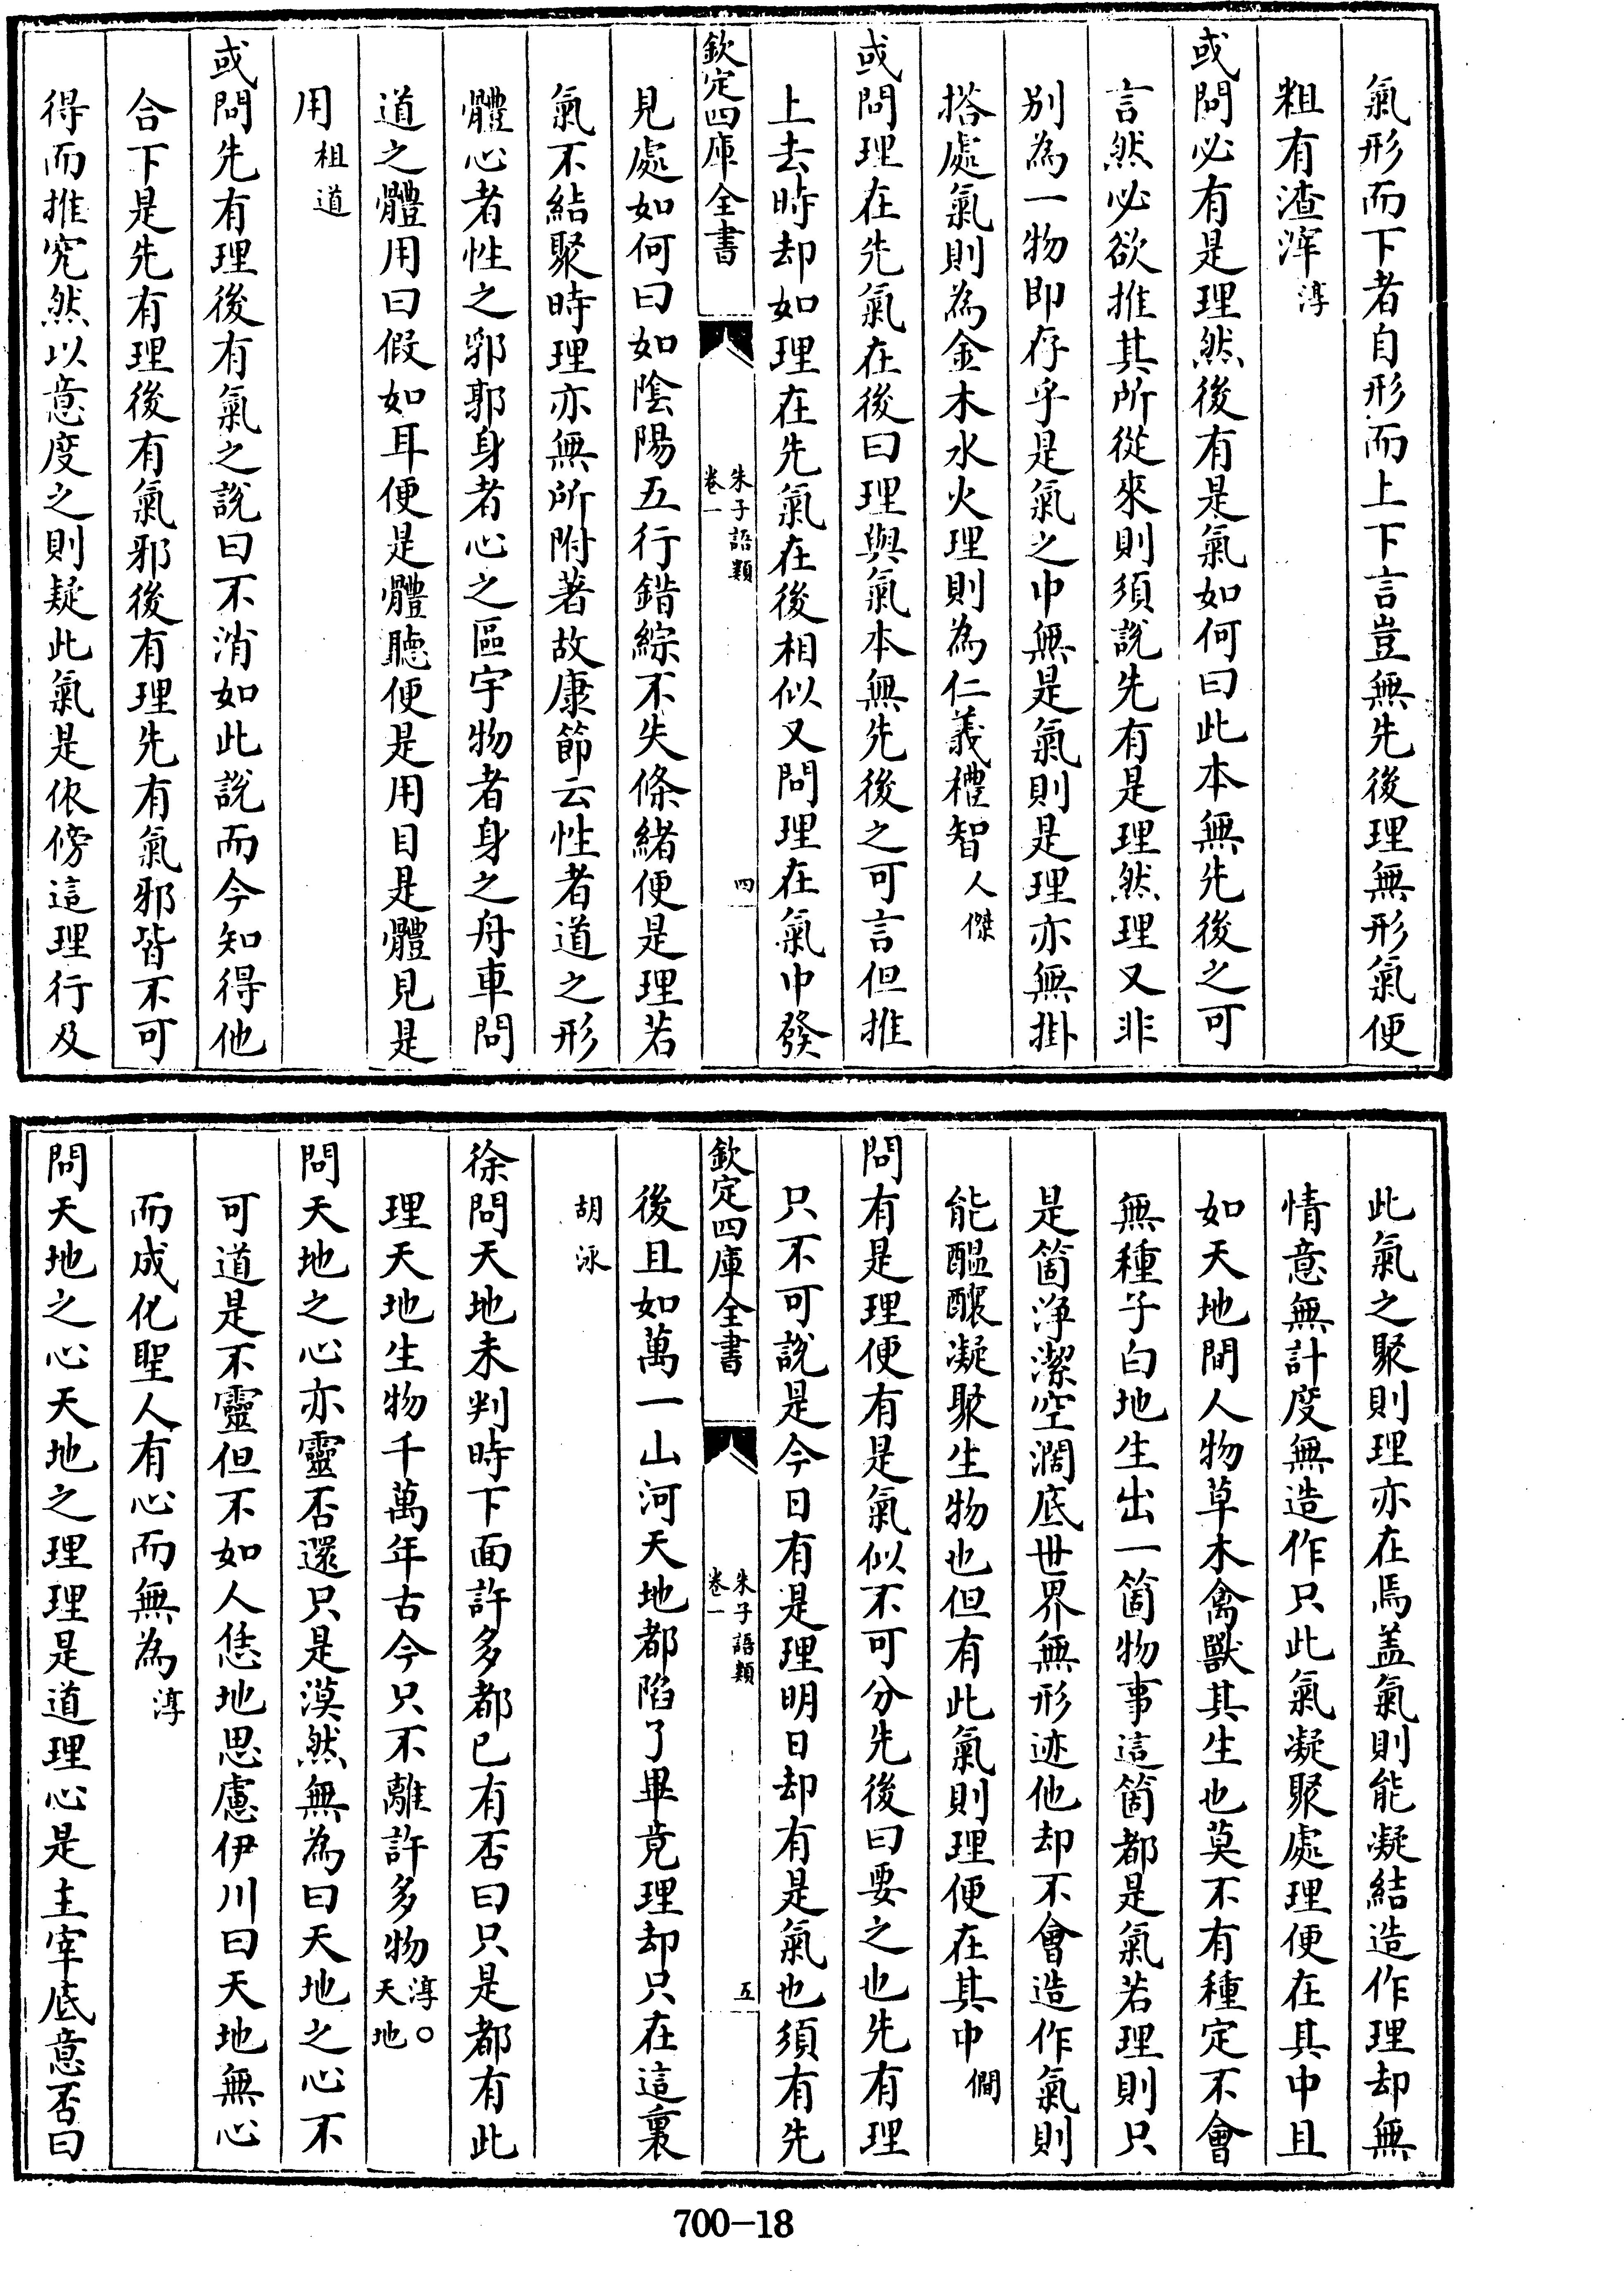 氣形而下者自形而上下言豈無先後理無形氣便
粗有渣滓淳
或問必有是理然後有是氣如何曰此本無先後之可
言然必欲推其所從來則須說先有是理然理又非
别為一物即存乎是氣之中無是氣則是理亦無掛
搭處氣則為金木水火理則為仁義禮智人傑
或問理在先氣在後曰理與氣本無先後之可言但推
上去時却如理在先氣在後相似又問理在氣中發
欽定四庫全書
朱子語類
卷一
四
見處如何曰如陰陽五行錯綜不失條緒便是理若
氣不結聚時理亦無所附著故康節云性者道之形
體心者性之郛郭身者心之區宇物者身之舟車問
道之體用曰假如耳便是體聽便是用目是體見是
用祖道
或問先有理後有氣之說曰不消如此說而今知得他
合下是先有理後有氣邪後有理先有氣邪皆不可
得而推究然以意度之則疑此氣是依傍這理行及
此氣之聚則理亦在焉盖氣則能凝結造作理却無
情意無計度無造作只此氣凝聚處理便在其中且
如天地間人物草木禽獸其生也莫不有種定不會
無種子白地生出一箇物事這箇都是氣若理則只
是箇浄潔空濶底世界無形迹他却不會造作氣則
能醖釀凝聚生物也但有此氣則理便在其中僩
問有是理便有是氣似不可分先後曰要之也先有理
只不可說是今日有是理明日却有是氣也須有先
欽定四庫全書
朱子語類
卷一
五
後且如萬一山河天地都陷了畢竟理却只在這裏
胡泳
徐問天地未判時下面許多都已有否曰只是都有此
理天地生物千萬年古今只不離許多物淳○天地
問天地之心亦靈否還只是漠然無為曰天地之心不
可道是不靈但不如人恁地思慮伊川曰天地無心
而成化聖人有心而無為淳
問天地之心天地之理理是道理心是主宰底意否曰
700-18